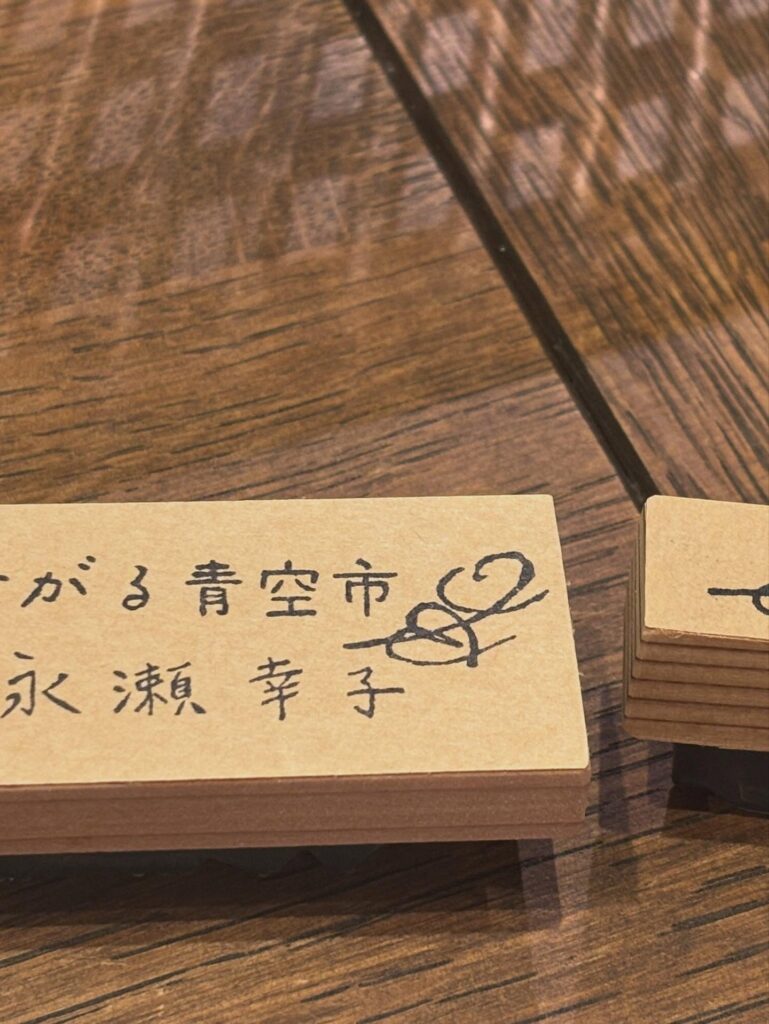 がる青空市
永瀬幸子